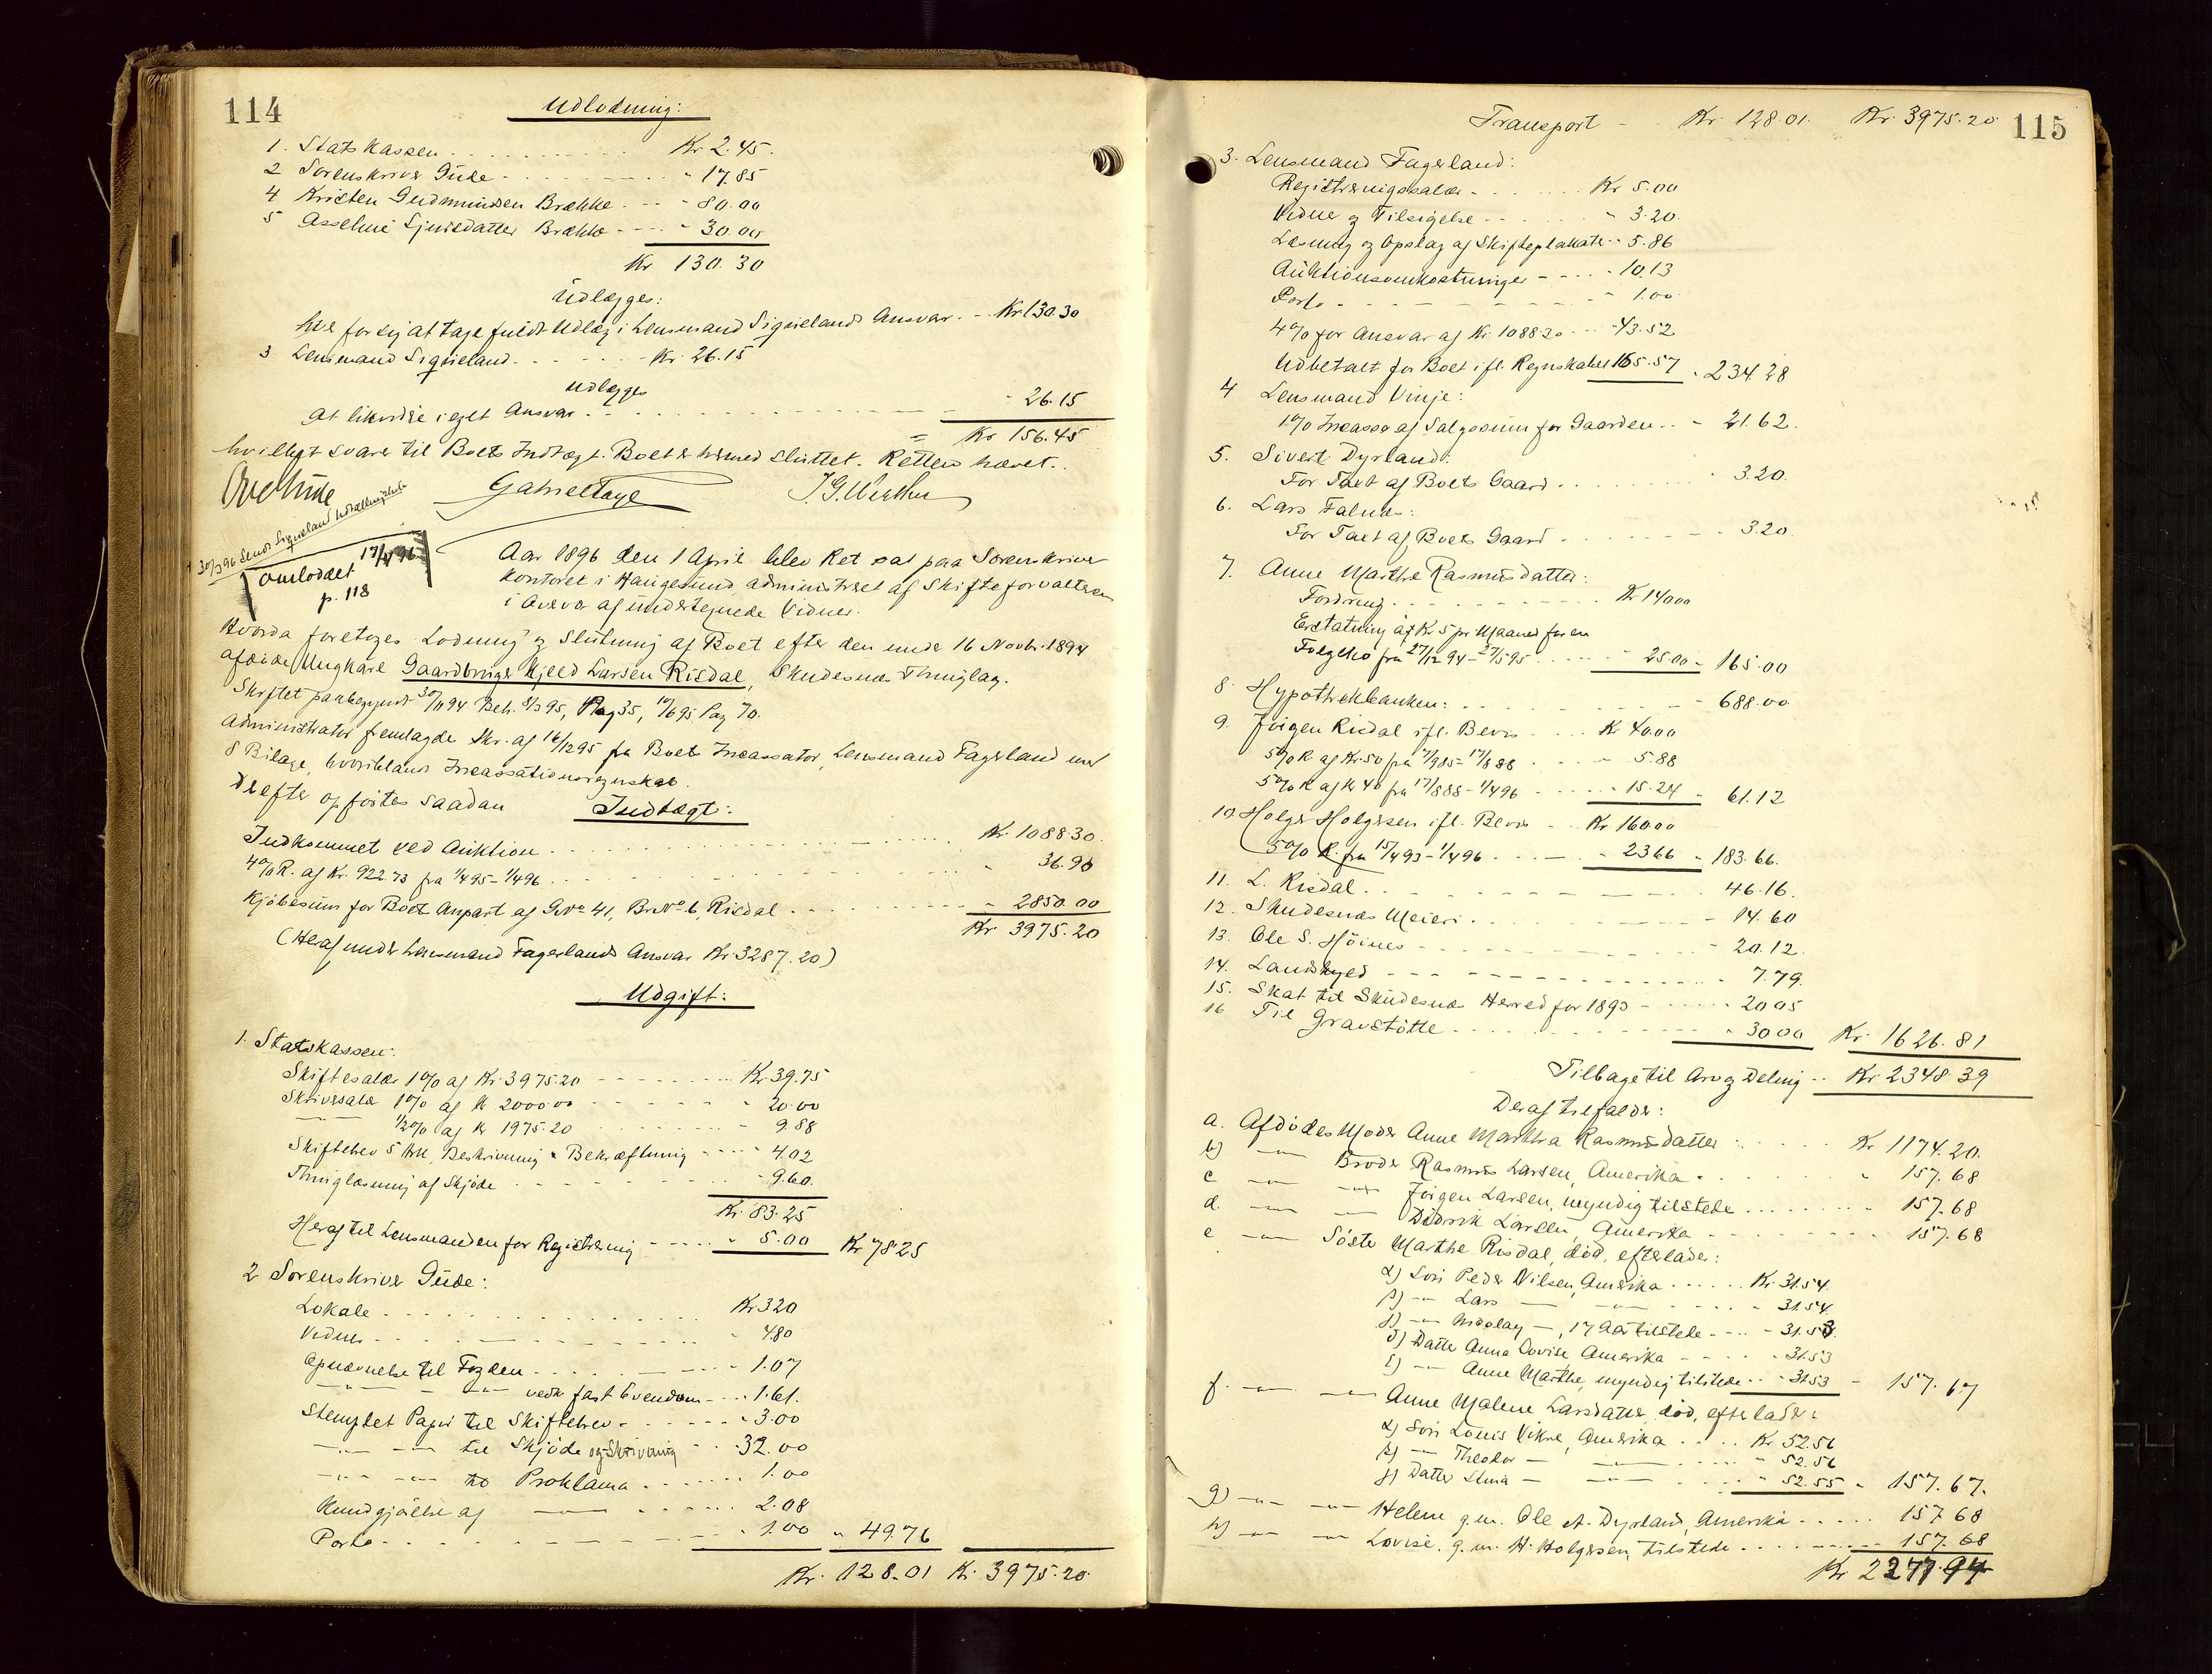 114
Udlodning:
1. Statskassen Kr 2.45.
2 Sorenskriver Gude - 17.85
4 Kristen Gudmundsen Brække - 80.00
5 Asseline Sjursdatter Brække - 30.00
Kr 130.30
Udlægges:
hver for sig at tage fuldt Udlæg i Lensmand Siqvelands Ansvar - Kr 130.30
3 Lensmand Siqveland Kr. 26.15
Udlægges
at likvidere i eget Ansvar - 26.15
= Kr 156.45
hvilket svarer til Boets Indtægt. Boet er hermed sluttet. Retten hævet.
Ove Gude Gabriel Tage
30/3 96 Sendt Siqveland
Omloddet 17/4 96
p. 118
Aar 1896 den 1 April blev Ret sat paa Sorenskriver
kontoret i Haugesund administreret af Skifteforvalteren
i Overvær af undertegnede Vidner.
Hvorda foretoges Lodning og Slutning af Boet efter den under 16 Novbr. 1894
afdøde Ungkarl Gaardbruger Kjeld Larsen Risdal, Skudesnæs Thinglag.
Skiftet paabegyndt 30/11 94 Beh. 8/3 95, Pag 35, 19/6 95 Pag 70.
Administrator fremlagde Skr. af 16/12 95 fra Boets Incassator, Lensmand Fagerland med
8 Bilage, hvoriblandt Incassationsregnskab.
Derefter opførtes saadan Indtægt:
Indkommet ved Auktion Kr. 1088.30
4% R. af Kr. 922.73 fra 1/4 95 - 1/4 96 - 36.90
Kjøbesum for Boets Anpart af G.No 41, Br.No 6, Risdal - 2850.00
Kr 3975.20
(Heraf under Lensmand Fagerlands Ansvar Kr 3287.20)
Udgift:
1. Statskassen:
Skiftesalær 1% af Kr. 3975.20 Kr. 39.75
Skriversalær 1% af Kr 2000.00 - 20.00
— 1/2% af Kr 1975.20 - 9.88
Skiftebrev 5 Ark, Beskrivning & Bekræftning - 4.02
Thinglæsning af Skjøde - 9.60.
Kr. 83.25
Heraf til Lensmanden for Registrering - 5.00 Kr 78.25
2 Sorenskriver Gude:
Lokale Kr. 3.20
Vidner - 4.80
Opnævnelse til Fogden - 1.07
—"— - —"— vedk fast Eiendom - 1.61.
Stemplet Papir til Skiftebrev - 3.00
—"— —"— til Skjøde og Skrivning - 32.00
—"— —"— to Proklama - 1.00
Kundgjørelse af —"— - 2.08
Porto - 1.00 " 49.76
Kr. 128.01 Kr. 3975.20
115
Transport - Kr. 128.01. Kr. 3975.20
3. Lensmand Fagerland:
Registreringssalær Kr 5.00
Vidne og Tilsigelse - 3.20.
Læsning og Opslag af Skifteplakater - 5.86
Auktionsomkostninger - 10.13
Porto - 1.00
4% for Ansvar af Kr. 1088.30 - 43.52
Udbetalt for Boet ifl. Regnskabet 165.57 - 234.28
4 Lensmand Vinje:
1% Incasso af Salgssum for Gaarden - 21.62.
5. Sivert Dyrland:
For Taxt af Boets Gaard - 3.20.
6. Lars Falnes:
For Taxt af Boets Gaard - 3.20.
7. Anne Marthe Rasmusdatter:
Fordring Kr 140.00
Erstatning af Kr 5 pr Maaned for en
Følgeko fra 27/12 94 - 27/5 95 - 25.00 - 165.00
8. Hypothekbanken: - 688.00
9. Jørgen Risdal ifl. Bevis Kr 40.00
5% R af Kr. 50 fra 7/9 85 - 17/8 88 - 5.88
5% R af Kr 40 fra 17/8 88 - 1/4 96 - 15.24 - 61.12
10. Holger Holgersen ifl. Bevis Kr 160.00
5% R. fra 15/4 93 - 1/4 96 - 23.66 - 183.66.
11. L. Risdal 46.16.
12. Skudesnæs Meieri - 14.60
13. Ole S. Høines - 20.12.
14. Landskyld - 7.79.
15. Skat til Skudesnæs Herred for 1893 - 20.05
16 Til Gravstøtte - 30.00 Kr. 1626.81
Tilbage til Arv og Deling - Kr 2348.39
Deraf tilfalder:
a. Afdødes Moder Anne Marthe Rasmusdatter Kr 1174.20.
b) —"— Broder Rasmus Larsen, Amerika " 157.68
c —"— —"— Jørgen Larsen, myndig tilstede " 157.68
d. —"— —"— Didrik Larsen, Amerika 157.68
e —"— Søster Marthe Risdal, død, efterlader:
α) Søn Peder Nilsen, Amerika Kr. 31.54.
β) —"— Lars — —"— - 31.54.
γ) —"— Nikolay —, 17 Aar tilstede - 31.53.
δ) Datter Anna Lovise Amerika - 31.53
ε) —"— Anne Marthe, myndig tilstede - 31.53 - 157.67
f. —"— —"— Anne Malene Larsdatter, død, efterlader:
α) Søn Louis Vikre, Amerika Kr. 52.56
β) —"— Theodor — —"— " 52.56
γ) Datter Stina — —"— " 52.55 - 157.67.
g) —"— —"— Helene g.m. Ole A. Dyrland, Amerika 157.68
h) —"— —"— Lovise. g.m. H. Holgersen, tilstede 157.68
Kr 2277.94